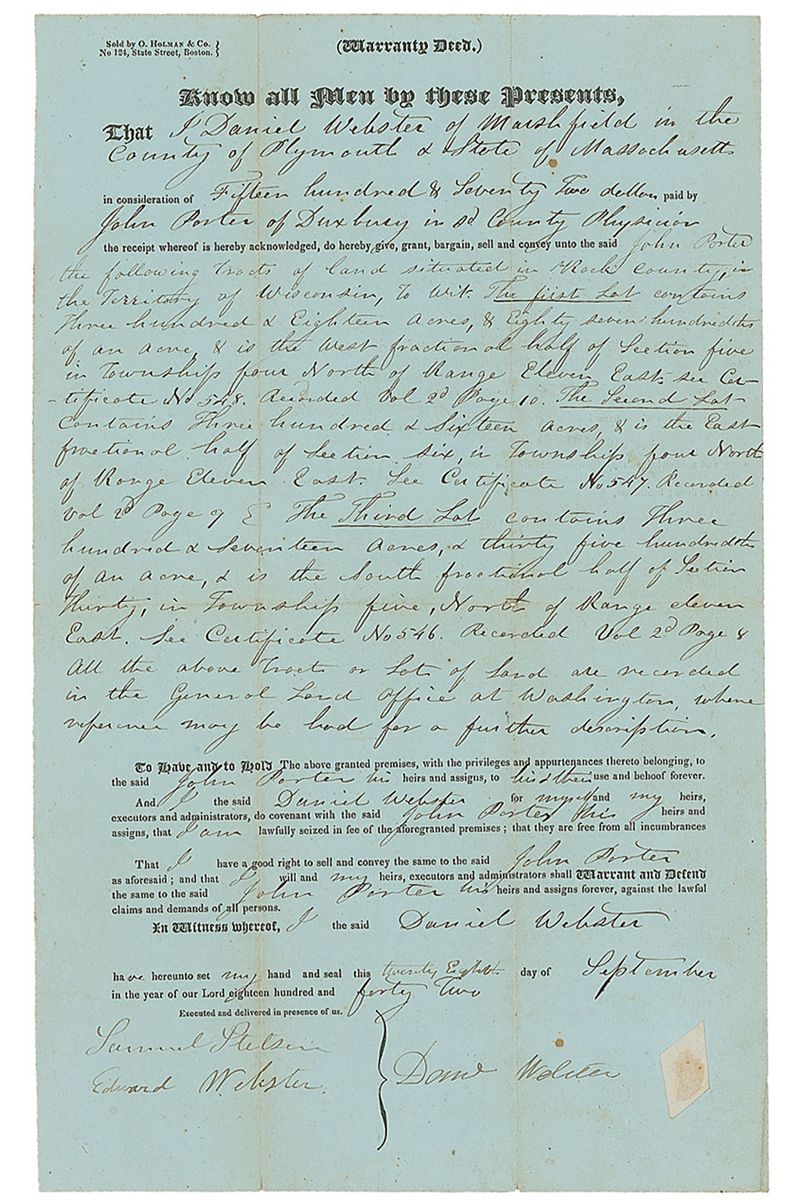 Sold by O. HOLMAN & Co.
No 124, State Street, Boston.
(Warranty Deed.)
Know all Men by these Presents,
That I Daniel Webster of Marshfield in the
County of Plymouth & State of Massachusetts
in consideration of Fifteen hundred & Seventy Two dollars paid by
John Porter of Duxbury in sd County Physician
the receipt whereof is hereby acknowledged, do hereby give, grant, bargain, sell and convey unto the said John Porter
the following Tracts of land situated in Rock County, in
the Territory of Wisconsin, To Wit. The first Lot contains
Three hundred & Eighteen Acres, & Eighty seven hundredths
of an acre, & is the West fractional half of Section five
in Township four North of Range Eleven East. see Cer-
-tificate No 548. Recorded Vol 2d Page 10. The Second Lot
contains Three hundred & Sixteen Acres, & is the East
fractional half of Section six, in Township four North
of Range Eleven East. See Certificate No 547. Recorded
Vol 2d Page 9 The Third Lot contains Three
hundred & Seventeen Acres, & thirty five hundredths
of an Acre, & is the South fractional half of Section
Thirty, in Township five, North of Range eleven
East. See Certificate No 546. Recorded Vol 2d Page 8
All the above Tracts or Lots of Land are recorded
in the General Land Office at Washington, where
reference may be had for a further description.
To Have and to Hold The above granted premises, with the privileges and appurtenances thereto belonging, to
the said John Porter his heirs and assigns, to his & their use and behoof forever.
And I the said Daniel Webster for myself and my heirs,
executors and administrators, do covenant with the said John Porter his heirs and
assigns, that I am lawfully seized in fee of the aforegranted premises; that they are free from all incumbrances
That I have a good right to sell and convey the same to the said John Porter
as aforesaid; and that I will and my heirs, executors and administrators shall Warrant and Defend
the same to the said John Porter his heirs and assigns forever, against the lawful
claims and demands of all persons.
In Witness whereof, I the said Daniel Webster
have hereunto set my hand and seal this twenty Eighth day of September
in the year of our Lord eighteen hundred and forty Two
Executed and delivered in presence of us.
Samuel Stetson
Edward Webster.
Danl Webster